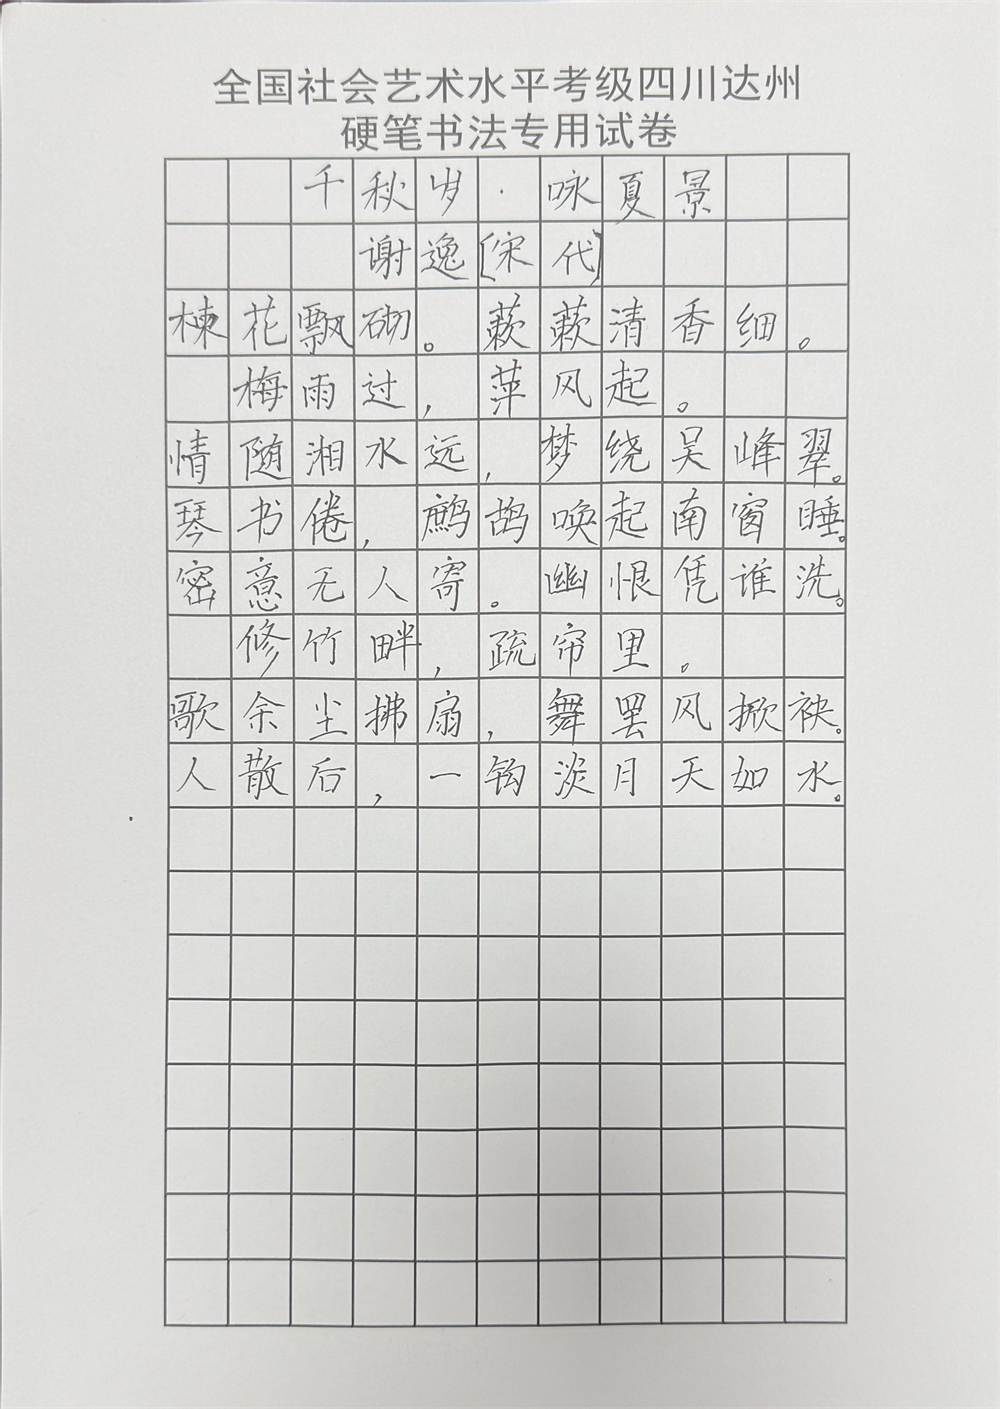 全国社会艺术水平考级四川达州
硬笔书法专用试卷
千秋岁·咏夏景
谢逸[宋代]
楝花飘砌。蔌蔌清香细。
梅雨过，萍风起。
情随湘水远，梦绕吴峰翠。
琴书倦，鹧鸪唤起南窗睡。
密意无人寄。幽恨凭谁洗。
修竹畔，疏帘里。
歌余尘拂扇，舞罢风掀袂。
人散后，一钩淡月天如水。